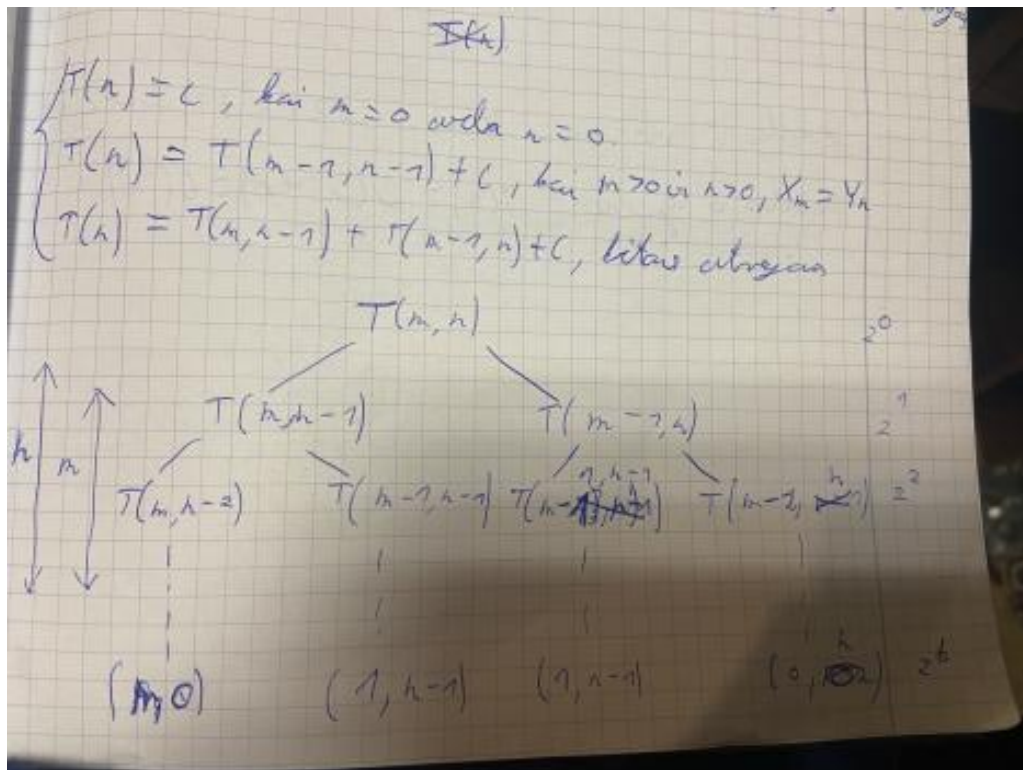 T(n)
T(n) = C, kai m = 0 arba n = 0
T(n) = T(m-1, n-1) + C, kai m>0 ir n>0, Xm = Yn
T(n) = T(m, n-1) + T(m-1, n) + C, kitais atvejais
T(m, n) 2^0
T(m, n-1) T(m-1, n) 2^1
n m
T(m, n-2) T(m-1, n-1) T(m-1, n-1) T(m-2, n) 2^2
(m, 0) (1, n-1) (1, n-1) (0, n) 2^k